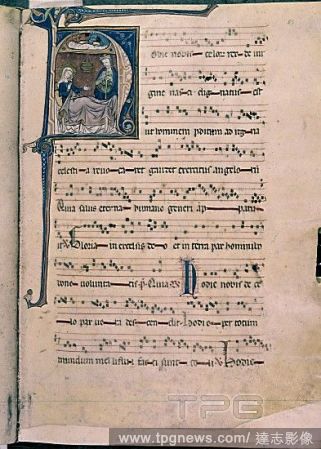 odie nobis celor rex de vir
gine nasci dignatus est
ut hominem perditum ad regna
celestia revocaret gaudet exercitus angeloru
Quia salus eterna humano generi apparuit
Gloria in excelsis deo et in terra pax hominib
bone voluntatis Quia Hodie nobis de ce
lo pax vera descendit Hodie per totum
mundum melliflui facti sunt celi Hodie
TPG
www.tpgnews.com/ 達志影像